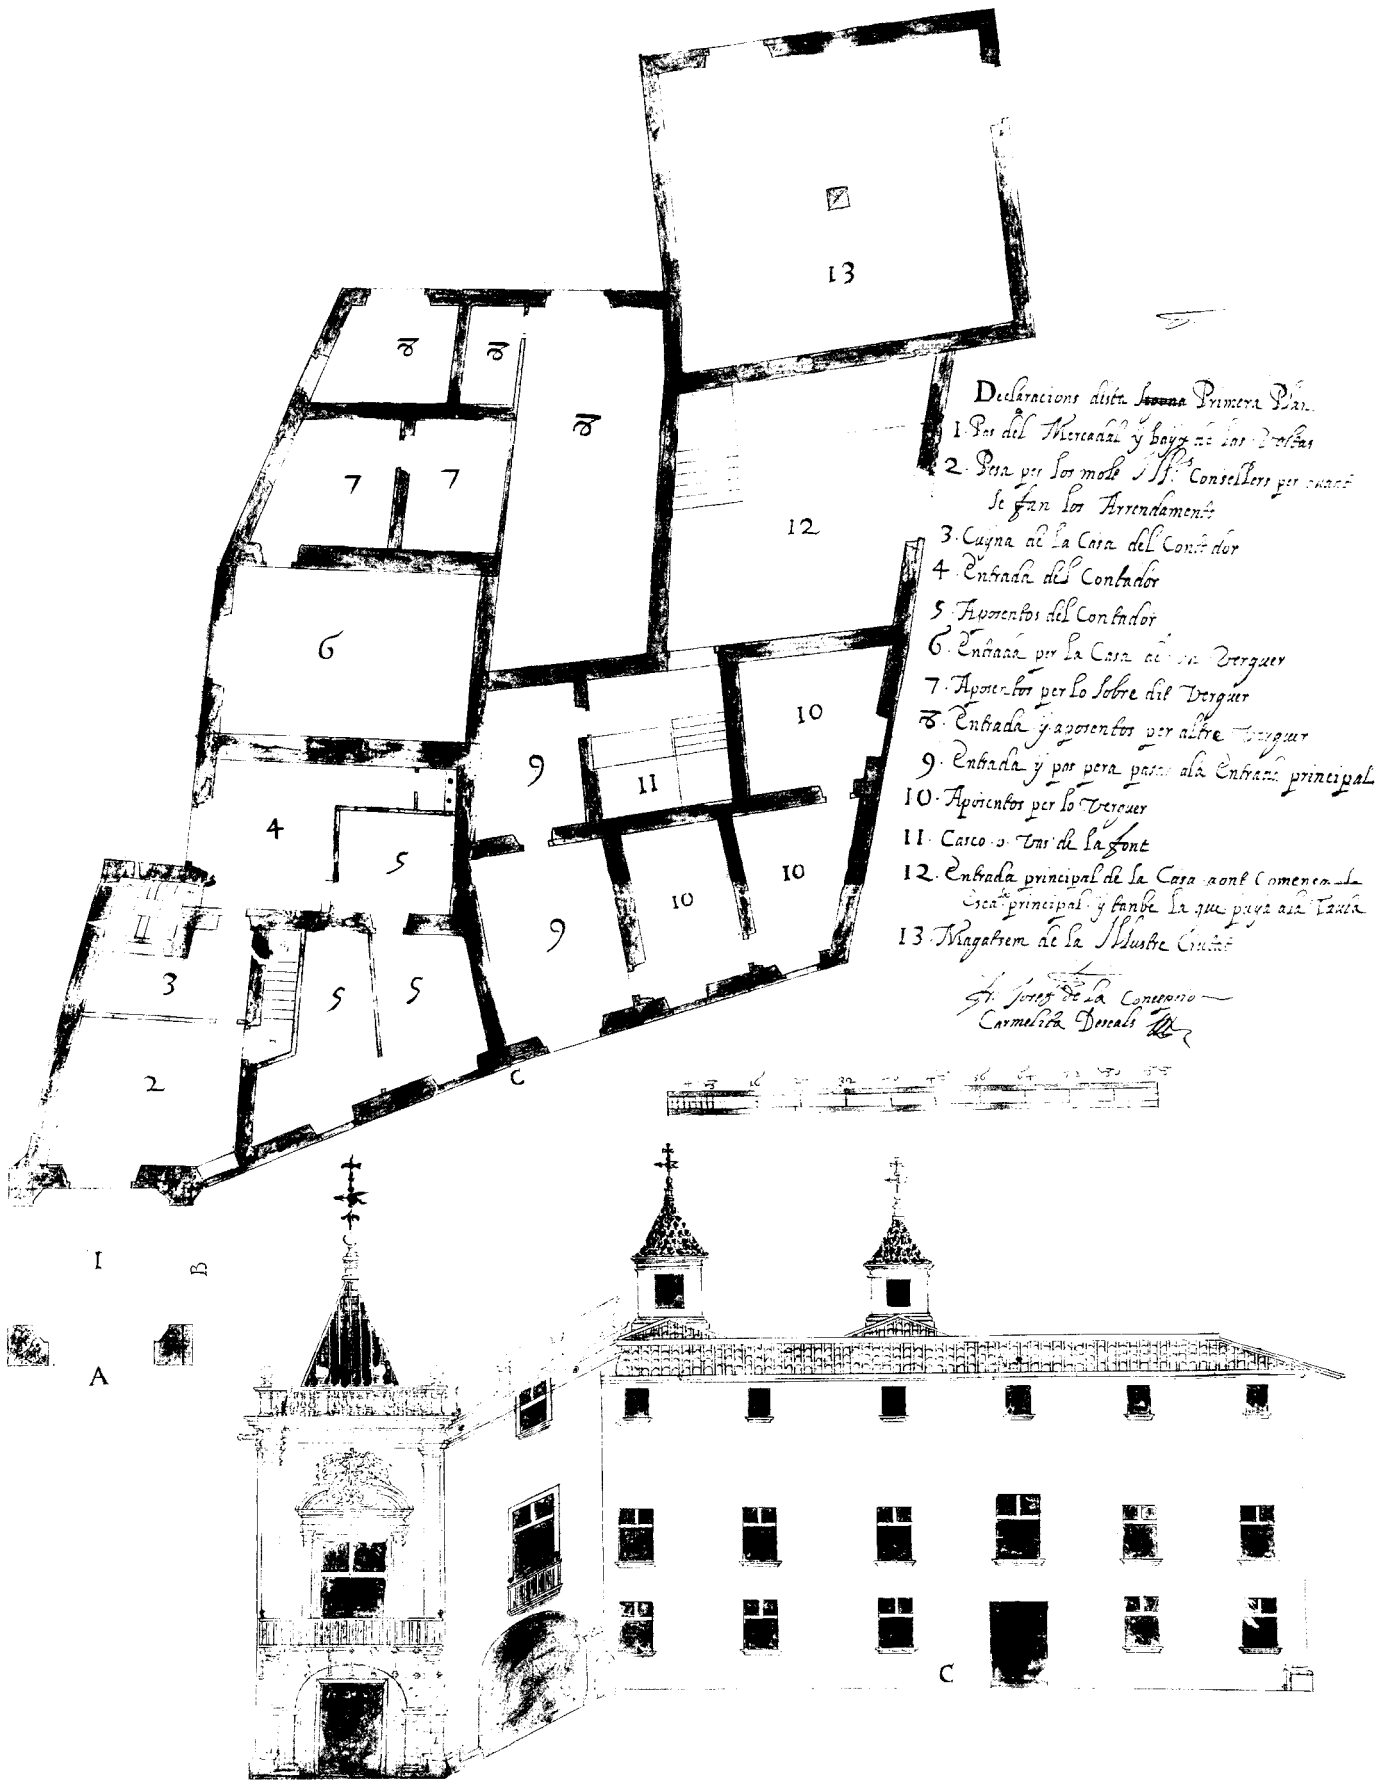 13
8
8
8
7
7
12
6
10
9
11
4
5
10
10
9
3
5
5
2
C
1
B
A
Declaracions desta Primera Plan
1. Pas del Mercadal y baix de las Voltas
2. Pesa per los molt Ills. Consellers per
se fan los Arrendaments
3. Cuyna de la Casa del Contador
4. Entrada del Contador
5. Aposentos del Contador
6. Entrada per la Casa de un Verguer
7. Aposentos per lo sobre dit Verguer
8. Entrada y aposentos per altre Verguer
9. Entrada y pas pera pasar ala Entrada principal
10. Aposentos per lo Verguer
11. Casco o vas de la font
12. Entrada principal de la Casa aont Comença la
Esca. principal y tanbe la que puya ala Taula
13. Magatzem de la Illustre Ciutat
Fr. Josef de la Concepcio
Carmelita Descals
16 32
C